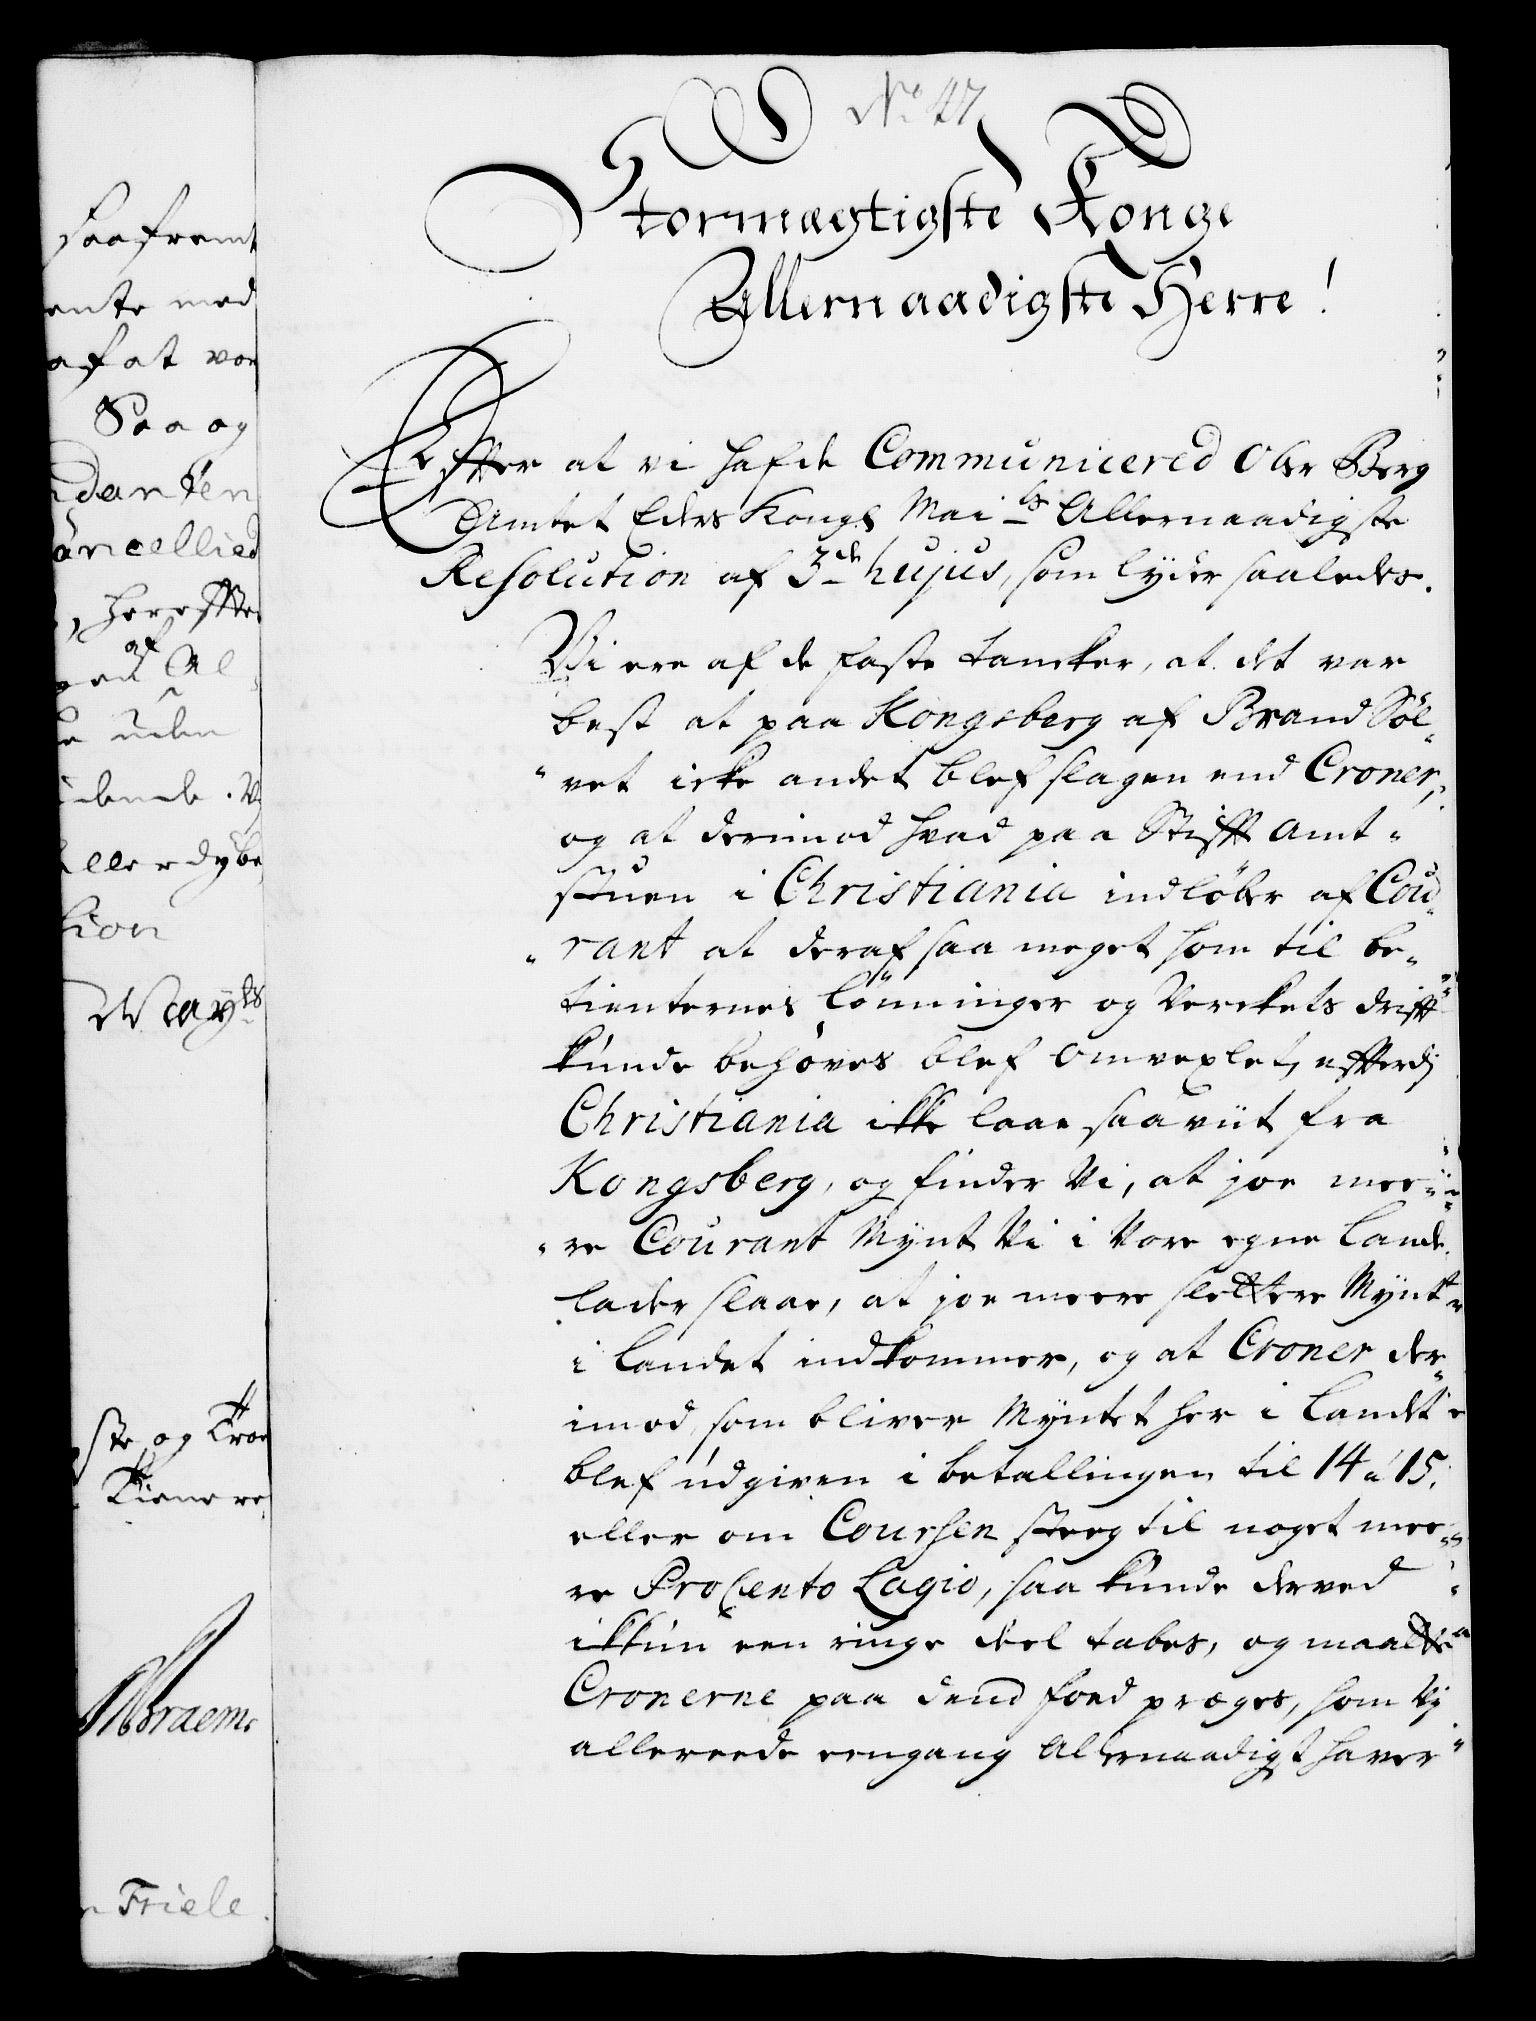 No 47
Stormægtigste Konge
Allernaadigste Herre!
Effter at vi hafde Communicered Ober Berg
Amtet Eders Kongl Mai ts Allernaadigste
Resolution af 3de hujus, som lyder saaledes.
Vi ere af de faste tancker, at det var
best at paa Kongsberg af Brand Söl-
vet icke andet blef slagen end Croner,
og at derimod hvad paa Stifft Amt-
stuen i Christiania indlöber af Cou-
rant at deraf saa meget som til be-
tienternes lönninger og Verckets drifft
kunde behöves blef omvexlet, effterdj
Christiania ikke laae saa viit fra
Kongsberg, og finder Vi, at joe mee-
re Courant Mynt Vi i Vore egne Lande
lader slaae, at joe meere slettere Mynt
i Landet indkommer, og at Croner der-
imod, som bliver Myntet her i Landet
blef udgiven i betallingen til 14 a 15.
eller om Coursen steeg til noget mee-
re ProCento Lagio, saa kunde derved
ikkun een ringe deel tabes, og maatte
Cronerne paa dend foed præges, som Vj
allereede eengang Allernaadigst haver
saafremt
ente med
af at
Saa og
danten
ancellied
, hereffter
af
Al
uden
dende.
Allerdybe
tion
Mayts
ste og Troe
Tienere
Abraem
Friele